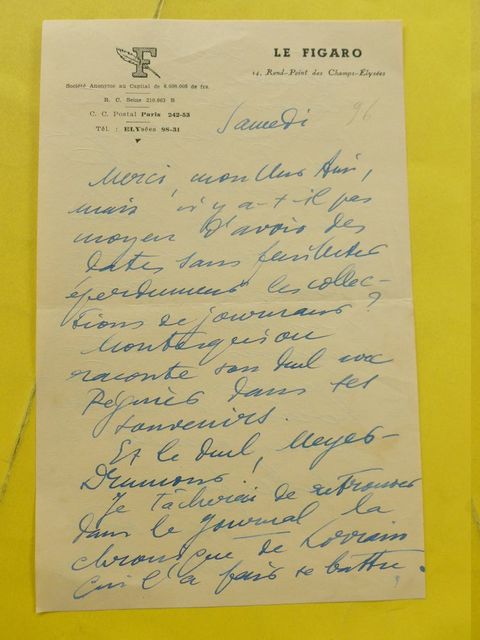 F
LE FIGARO
14, Rond-Point des Champs-Elysées
Société Anonyme au Capital de 6.000.005 de frs.
R. C. Seine 210.963 B
C. C. Postal Paris 242-53
Tél : ELYsées 98-31
96
Samedi
Merci, mon cher Ami,
mais n'y a-t-il pas
moyen d'avoir des
dates sans feuilleter
éperdument les collec-
tions de journaux ?
Montesquiou
raconte son duel avec
Régnier dans ses
souvenirs.
Et le duel, Meyer-
Drumont,
Je tâcherai de retrouver
dans le Journal la
chronique de Lorrain
qui l'a fait se battre.